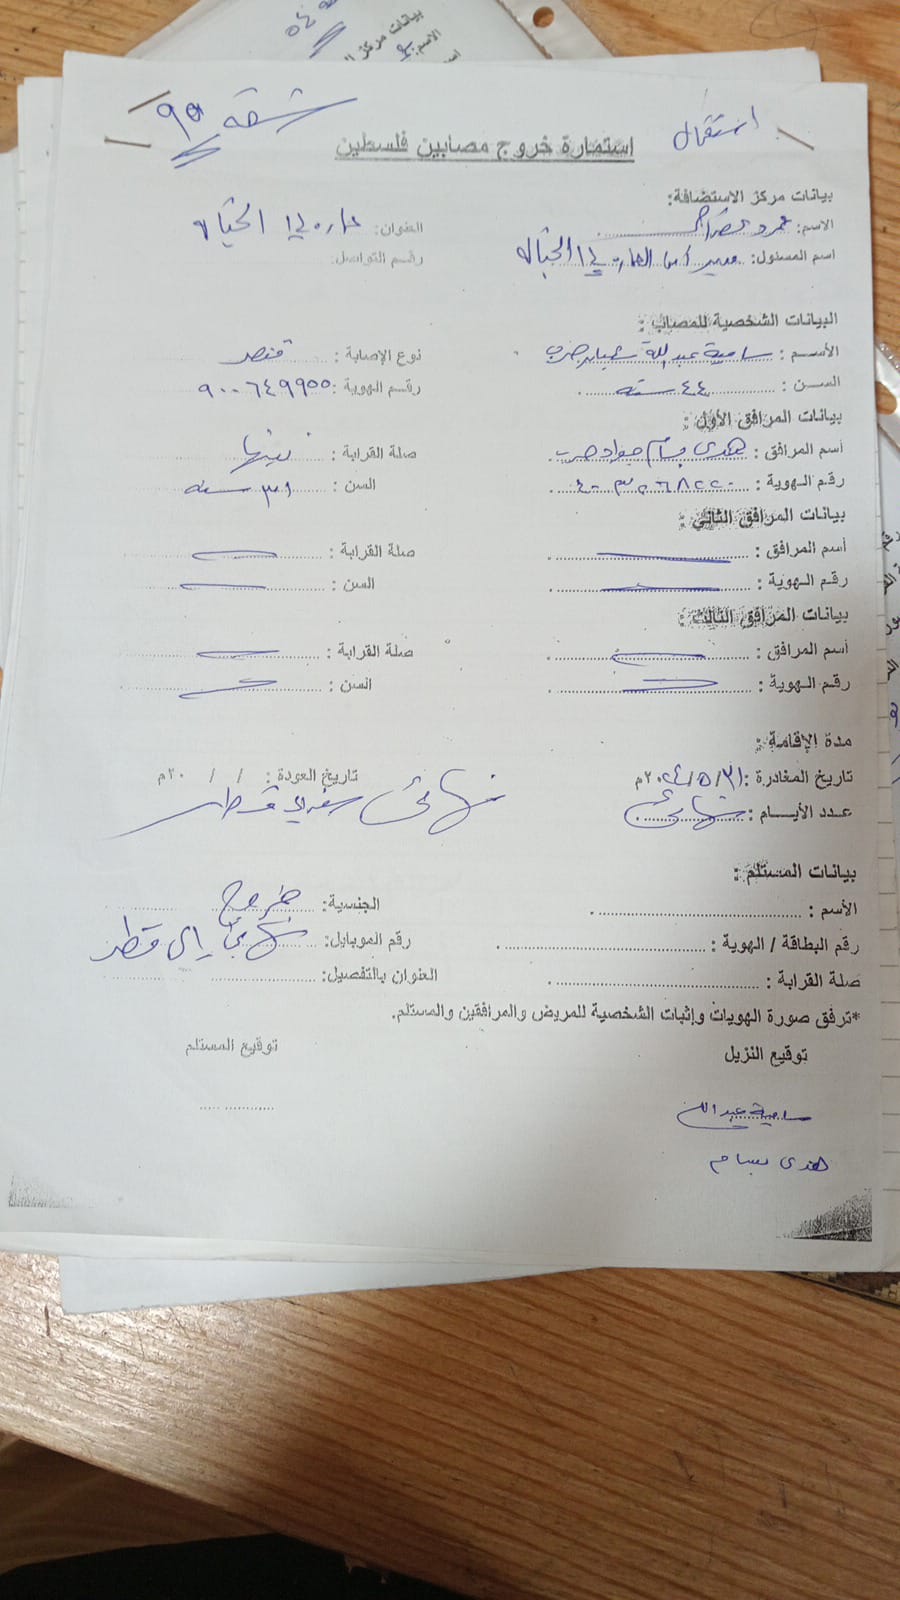 بيانات مركز
الاسم:
شقة
استمارة خروج مصابين فلسطين
بيانات مركز الاستضافة:
الاسم: عمرو العنوان: عماره
اسم المسئول: رقم التواصل:
البيانات الشخصية للمصاب:
الأسم: سامية عبدالله شعبان حرب نوع الإصابة:
السن: ٤٤ سنه رقم الهوية: ٩٠٠٦٤٩٩٥٥
بيانات المرافق الأول:
أسم المرافق: هدى بسام جواد حرب صلة القرابة:
رقم الهوية: السن: ٣١ سنه
بيانات المرافق الثاني:
أسم المرافق: صلة القرابة:
رقم الهوية: السن:
بيانات المرافق الثالث:
أسم المرافق: صلة القرابة:
رقم الهوية: السن:
مدة الإقامة:
تاريخ المغادرة: ٢٠٢٤/٥/٣١م تاريخ العودة: / / ٢٠م
عدد الأيام: نهائى نهائى قطر
بيانات المستلم:
الأسم: الجنسية: خروج
رقم البطاقة / الهوية: رقم الموبايل: نهائي إلى قطر
صلة القرابة: العنوان بالتفصيل:
*ترفق صورة الهويات وإثبات الشخصية للمريض والمرافقين والمستلم.
توقيع النزيل توقيع المستلم
سامية عبدالله
هدى بسام